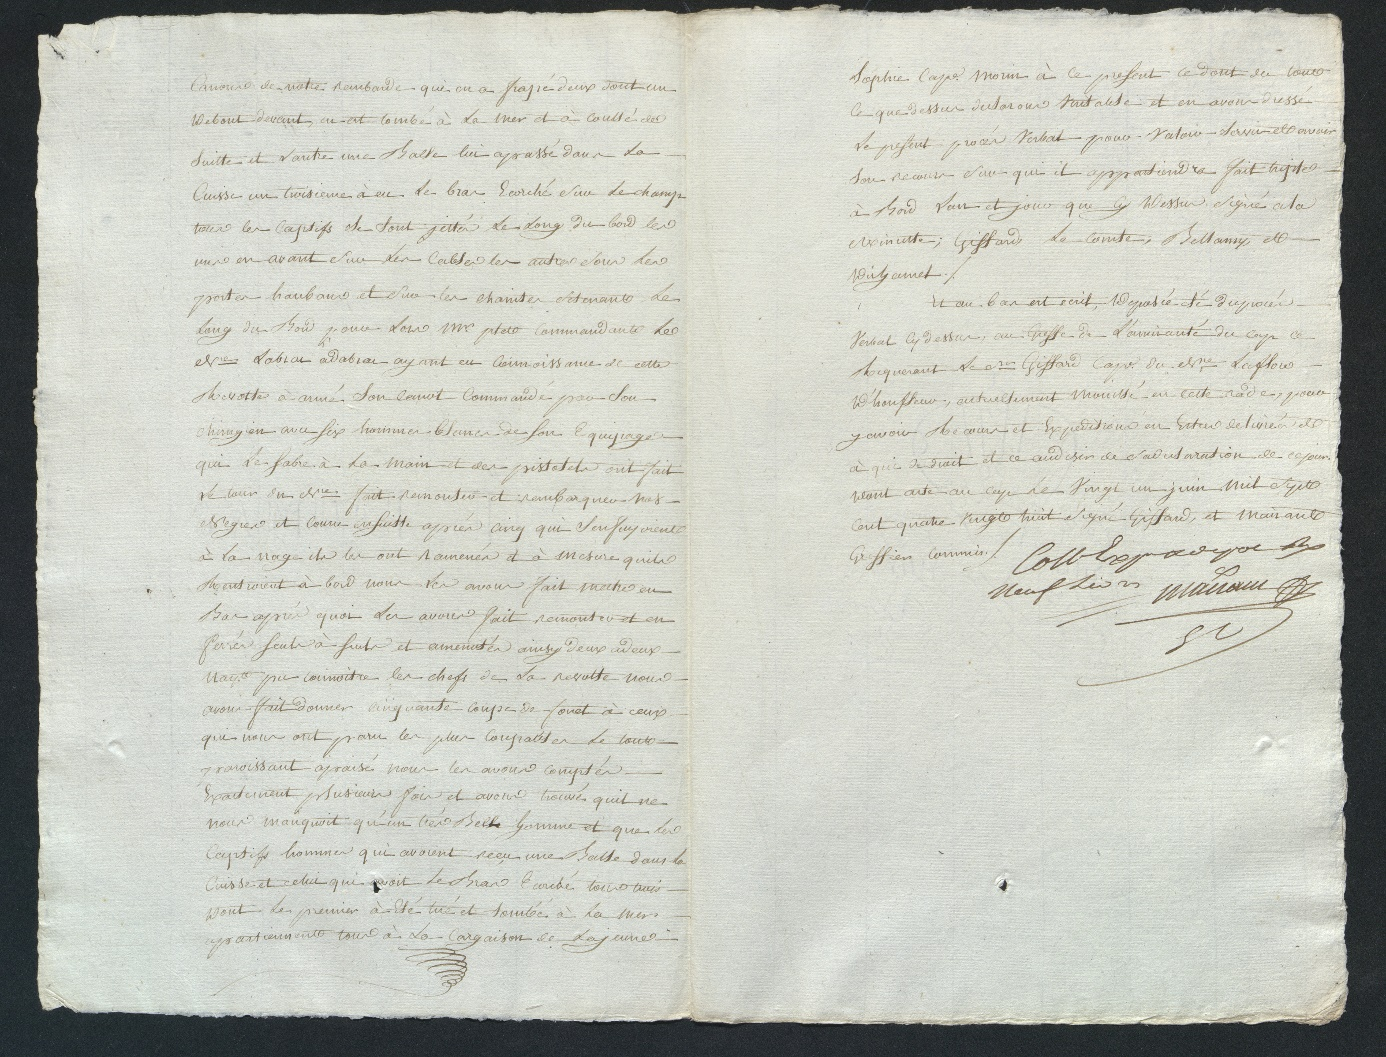 Canons de notre rembarde qui en a frapé deux dont un
debout devant, en est tombé à La Mer et à coullé de
Suitte et Lautre une Balle lui a passé dans La
Cuisse un troisieme à eu Le bras Ecorché Sur Le champ
tous les Captifs se Sont jettés Le Long du bord les
uns en avant Sur Les Cables les autres Sous les
portes haubans et Sur les chaines
Long du Bord pour Lors Mr commandant Le
Nre Labras àdabras ayant eu Connoissance de cette
Revolte à armé Son Canot Commandé par Son
chirugien avec six hommes blancs de son Equipage
qui Le Sabre à La main et des pistolets ont fait
Le tour du Nre fait remonter et rembarquer nos
Negres et Couru ensuitte aprés Cinq qui Senfuyoient
à La nage ils les ont ramenés et à mesure quils
Rentroient à bord nous Les avons fait mettre en
Bas aprés quoi Les avons fait remonter et en
ferrés Seuls à Seuls et amenotés ainsy deux à deux
pu connoitre les chefs de La revolte nous
avons fait donner cinquante coups de fouet à ceux
qui nous ont paru les plus Coupables Le tout
paroissant apaisé nous les avons comptés
Exactement plusieurs fois et avons trouvé quil ne
nous manquoit qu'un tres Belle homme et que les
Captifs hommes qui avoient reçu une Balle dans la
Cuisse et celui qui avoit Le Bras Ecorché tous trois
dont Le premier à Eté tué et tombé à La Mer
apartiennent tous à La Cargaison de Lajeune
Sophie Cape Morin à ce present ce dont du tout
Ce que dessus avons dressé
Le present procés Verbal pour Valoir Servir et avoir
Son recours Sur qui il appartiendra fait triple
à Bord Lan et jour que Cy Dessus Signé ala
Minutte; Giffard Le Comte, Bellamy et
Duhamel ./.
Et au bas est écrit, Deposée du procés
Verbal Cydessus, au Greffe de L'amirauté du Cap ce
Requerant Le Sr Giffard Cape du Nre Laflore
d'honfleur, actuellement Mouillé en cette rade, pour
y avoir Recours et Expeditions en Estre delivrés
à qui de droit et ce audesir de Sa déclaration de cejour
dont acte au Cap Le Vingt un juin Mil Sept
Cent quatre Vingt huit Signé Giffard, et Mañant
Greffier Commis ./.
Coll
Neuf
Mañant